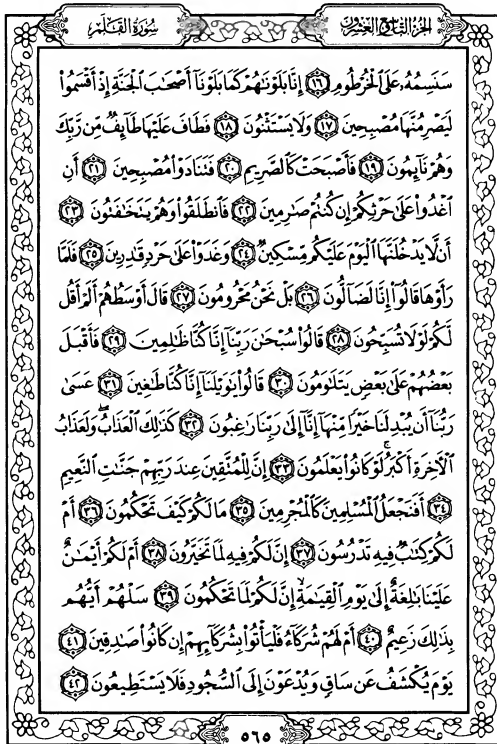 سُورَةُ القَلَمِ الجُزْءُ التَّاسِعُ وَالعِشْرُونَ
سَنَسِمُهُۥ عَلَى ٱلْخُرْطُومِ ١٦ إِنَّا بَلَوْنَٰهُمْ كَمَا بَلَوْنَآ أَصْحَٰبَ ٱلْجَنَّةِ إِذْ أَقْسَمُوا۟
لَيَصْرِمُنَّهَا مُصْبِحِينَ ١٧ وَلَا يَسْتَثْنُونَ ١٨ فَطَافَ عَلَيْهَا طَآئِفٌ مِّن رَّبِّكَ
وَهُمْ نَآئِمُونَ ١٩ فَأَصْبَحَتْ كَٱلصَّرِيمِ ٢٠ فَتَنَادَوْا۟ مُصْبِحِينَ ٢١ أَنِ
ٱغْدُوا۟ عَلَىٰ حَرْثِكُمْ إِن كُنتُمْ صَٰرِمِينَ ٢٢ فَٱنطَلَقُوا۟ وَهُمْ يَتَخَٰفَتُونَ ٢٣
أَن لَّا يَدْخُلَنَّهَا ٱلْيَوْمَ عَلَيْكُم مِّسْكِينٌ ٢٤ وَغَدَوْا۟ عَلَىٰ حَرْدٍ قَٰدِرِينَ ٢٥ فَلَمَّا
رَأَوْهَا قَالُوٓا۟ إِنَّا لَضَآلُّونَ ٢٦ بَلْ نَحْنُ مَحْرُومُونَ ٢٧ قَالَ أَوْسَطُهُمْ أَلَمْ أَقُل
لَّكُمْ لَوْلَا تُسَبِّحُونَ ٢٨ قَالُوا۟ سُبْحَٰنَ رَبِّنَآ إِنَّا كُنَّا ظَٰلِمِينَ ٢٩ فَأَقْبَلَ
بَعْضُهُمْ عَلَىٰ بَعْضٍ يَتَلَٰوَمُونَ ٣٠ قَالُوا۟ يَٰوَيْلَنَآ إِنَّا كُنَّا طَٰغِينَ ٣١ عَسَىٰ
رَبُّنَآ أَن يُبْدِلَنَا خَيْرًا مِّنْهَآ إِنَّآ إِلَىٰ رَبِّنَا رَٰغِبُونَ ٣٢ كَذَٰلِكَ ٱلْعَذَابُ ۖ وَلَعَذَابُ
ٱلْءَاخِرَةِ أَكْبَرُ ۚ لَوْ كَانُوا۟ يَعْلَمُونَ ٣٣ إِنَّ لِلْمُتَّقِينَ عِندَ رَبِّهِمْ جَنَّٰتِ ٱلنَّعِيمِ
٣٤ أَفَنَجْعَلُ ٱلْمُسْلِمِينَ كَٱلْمُجْرِمِينَ ٣٥ مَا لَكُمْ كَيْفَ تَحْكُمُونَ ٣٦ أَمْ
لَكُمْ كِتَٰبٌ فِيهِ تَدْرُسُونَ ٣٧ إِنَّ لَكُمْ فِيهِ لَمَا تَخَيَّرُونَ ٣٨ أَمْ لَكُمْ أَيْمَٰنٌ
عَلَيْنَا بَٰلِغَةٌ إِلَىٰ يَوْمِ ٱلْقِيَٰمَةِ ۙ إِنَّ لَكُمْ لَمَا تَحْكُمُونَ ٣٩ سَلْهُمْ أَيُّهُم
بِذَٰلِكَ زَعِيمٌ ٤٠ أَمْ لَهُمْ شُرَكَآءُ فَلْيَأْتُوا۟ بِشُرَكَآئِهِمْ إِن كَانُوا۟ صَٰدِقِينَ ٤١
يَوْمَ يُكْشَفُ عَن سَاقٍ وَيُدْعَوْنَ إِلَى ٱلسُّجُودِ فَلَا يَسْتَطِيعُونَ ٤٢
٥٦٥